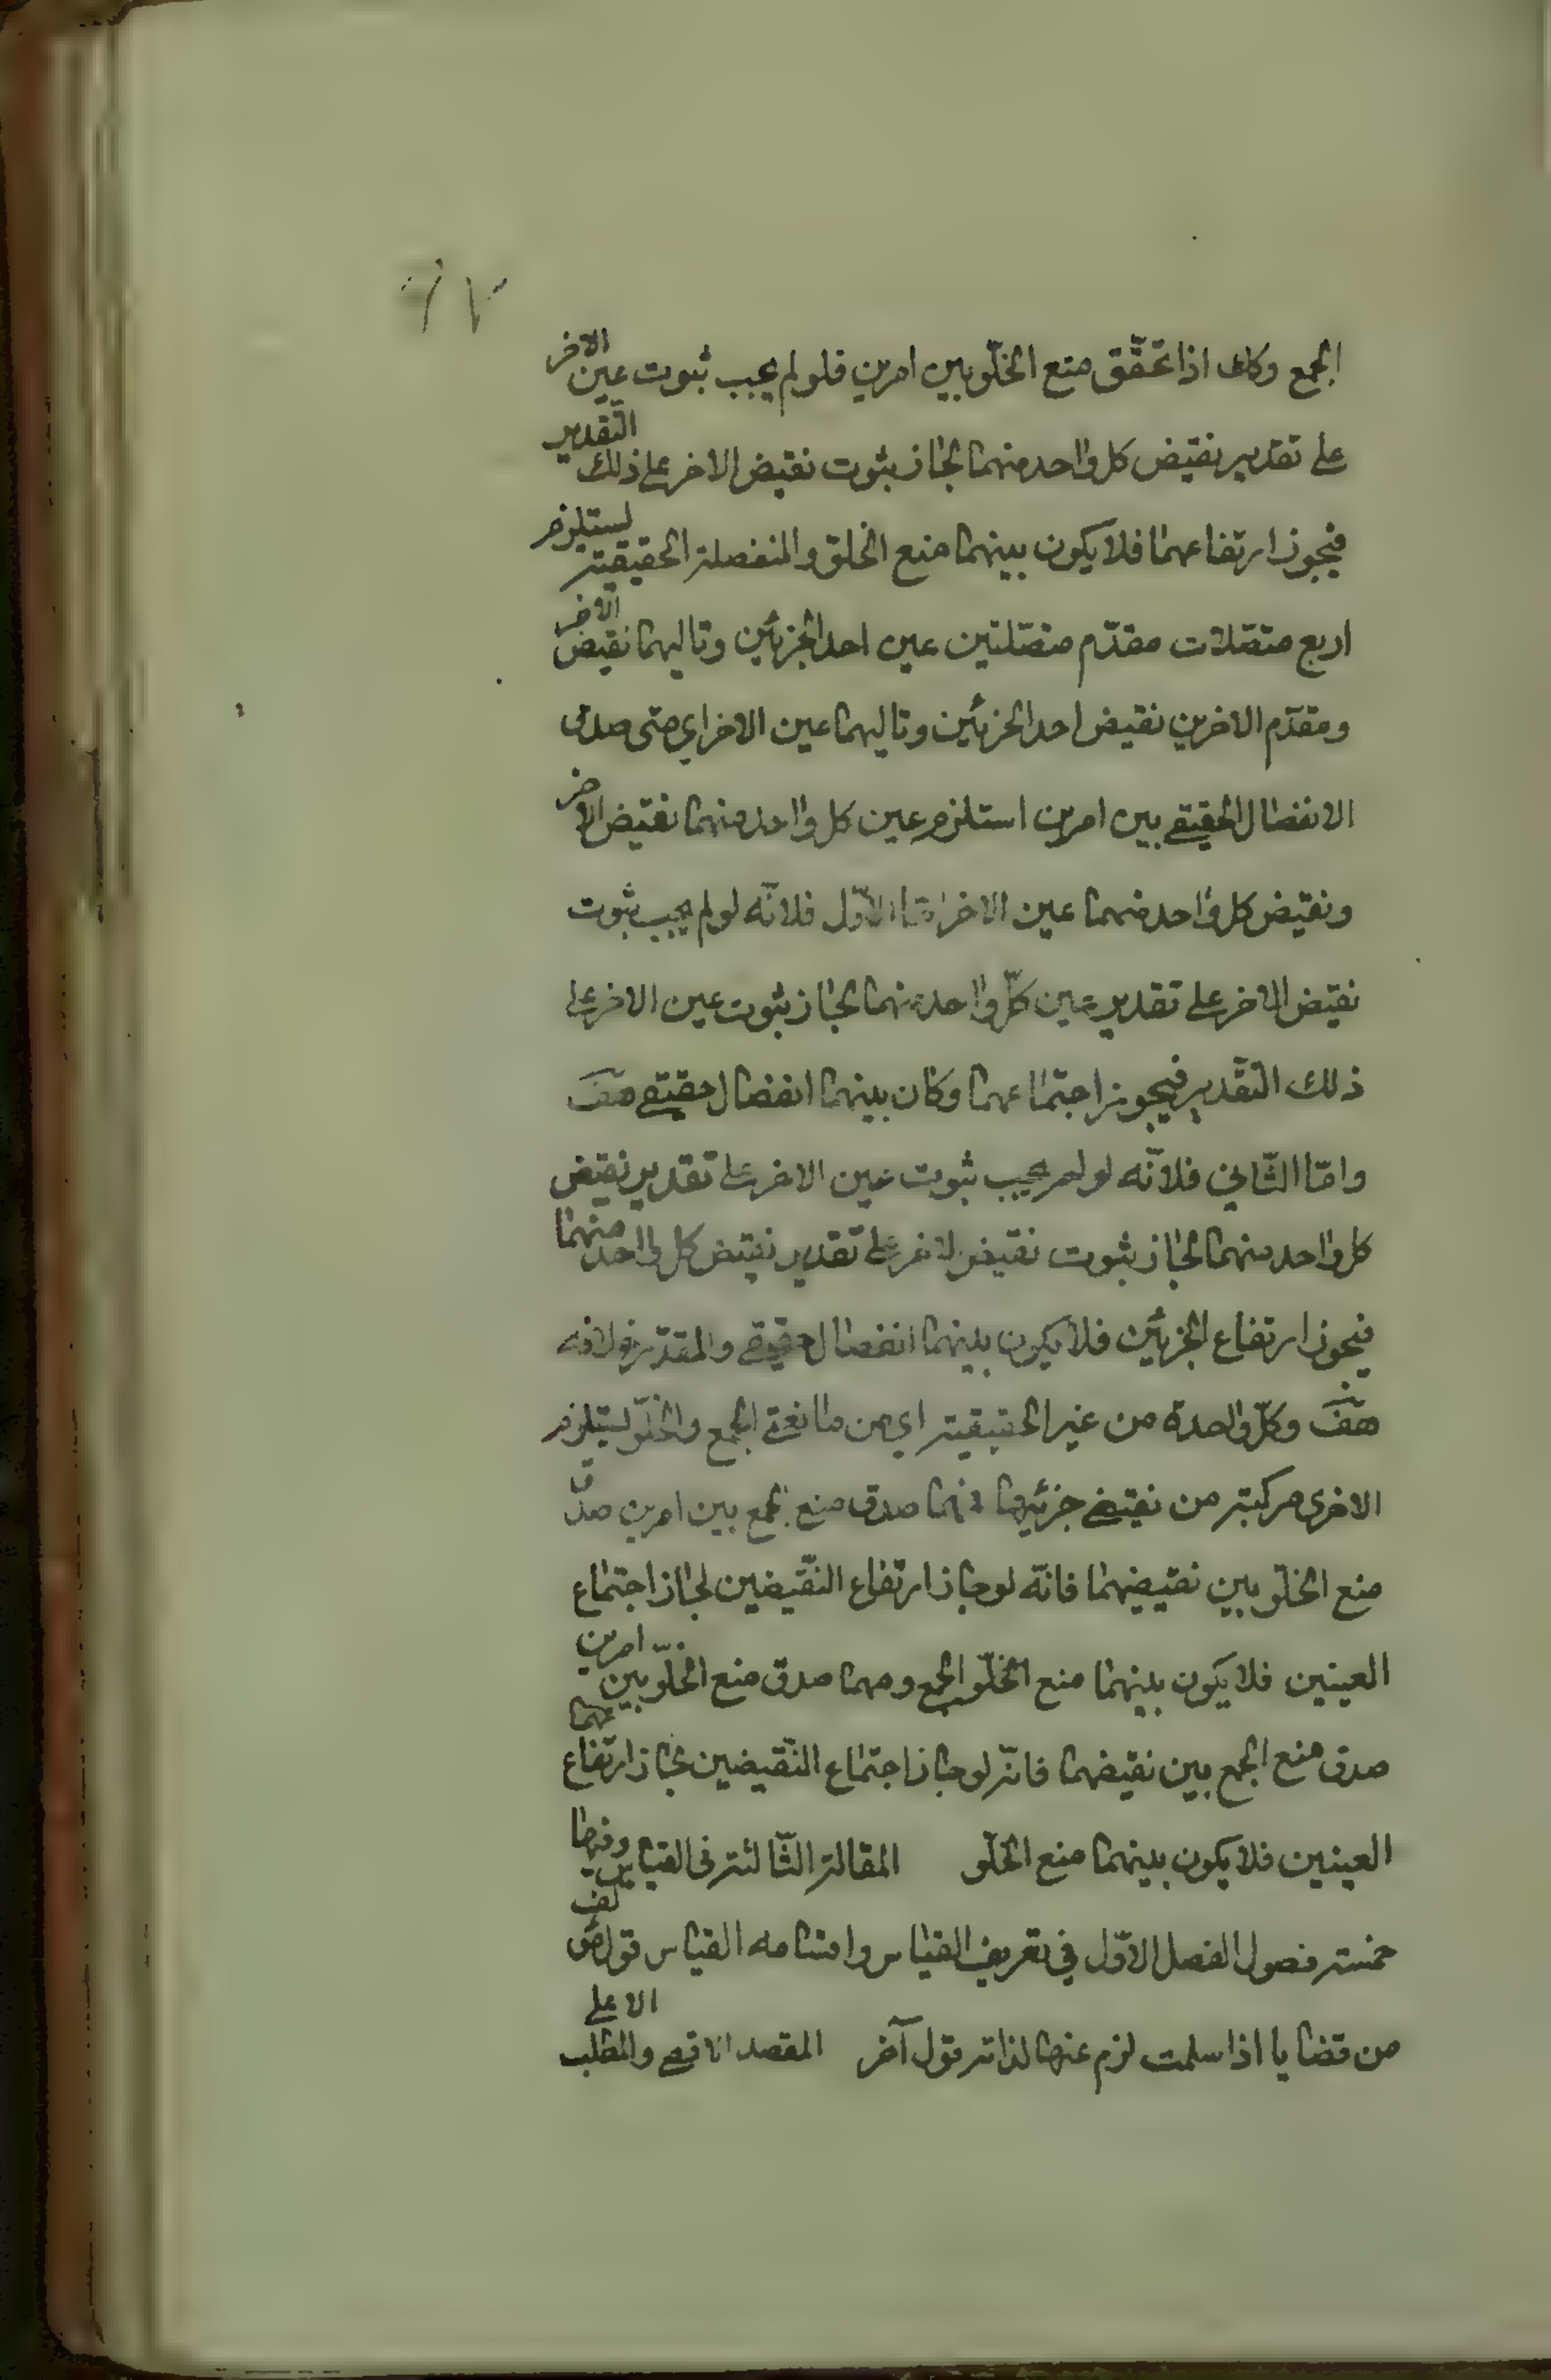 الجمع وكلما اذا تحقّق منع الخلّو بين امرين فلو لم يجب ثبوت عين الاخر
على تقدير نقيض كل واحد منهما لجاز ثبوت نقيض الاخر على ذلك التّقدير
فيجوز ارتفاعهما فلا يكون بينهما منع الخلو والمنفصلة الحقيقيّة يستلزم
اربع متّصلات مقدّم متصّلتين عين احد الجزئين وتاليهما نقيض الآخر
ومقدّم الاخرين نقيض احد الجزئين وتاليهما عين الاخر اي متى صدق
الانفصال الحقيقي بين امرين استلزم عين كل واحد منهما نقيض الاخر
ونقيض كل واحد منهما عين الاخر امّا الاوّل فلانّه لو لم يجب ثبوت
نقيض الاخر على تقدير عين كلّ واحد منهما لجاز ثبوت عين الاخر على
ذلك التّقدير فيجوز اجتماعهما وكان بينهما انفصال حقيقي هف
وامّا الثّاني فلانّه لو لم يجب ثبوت عين الاخر على تقدير نقيض
كل واحد منهما لجاز ثبوت نقيض الاخر على تقدير نقيض كل واحد منهما
فيجوز ارتفاع الجزئين فلا يكون بينهما انفصال حقيقي والمقدّر خلافه
هف وكلّ واحدة من غير الحقيقيّة اي من مانعتي الجمع والخلّو يستلزم
الاخرى مركبة من نقيضي جزئيهما فمهما صدق منع الجمع بين امرين صدق
منع الخلّو بين نقيضيهما فانّه لو جاز ارتفاع النّقيضين لجاز اجتماع
العينين فلا يكون بينهما منع الخلّو الجمع ومهما صدق منع الخلّو بين امرين
صدق منع الجمع بين نقيضهما فانّه لو جاز اجتماع النّقيضين لجاز ارتفاع
العينين فلا يكون بينهما منع الخلّو المقالة الثّالثة فى القياس وفيها
خمسة فصول الفصل الاوّل في تعريف القياس واقسامه القياس قول مؤلف
من قضايا اذا سلمت لزم عنها لذاته قول آخر المقصد الاقصى والمطلب الاعلى